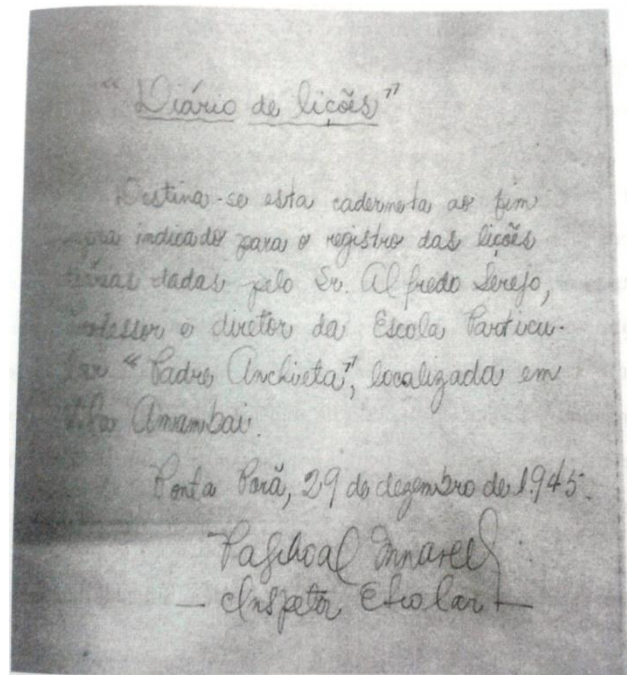 "Diário de lições"
Destina-se esta caderneta ao fim
indicado para o registro das lições
diárias dadas pelo Sr. Alfredo Serejo,
professor e diretor da Escola Particu-
lar "Padre Anchieta", localizada em
Vila Amambai.
Ponta Porã, 29 de dezembro de 1.945.
Paschoal
— Inspetor Escolar —